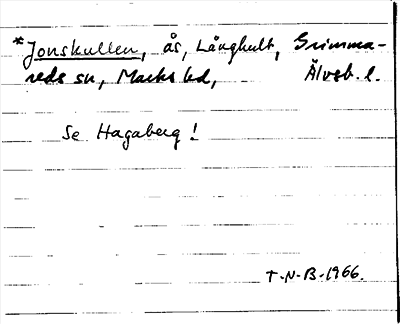 *Jonskullen, ås, Långhult, Grimma-
reds sn, Marks hd, Älvsb. l.
Se Hagaberg!
T-N-B-1966.